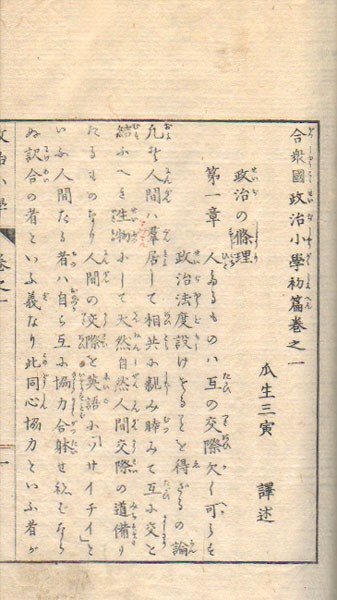 合衆國政治小學初篇巻之一
瓜生三寅 譯述
政治の條理
第一章 人たるものハ互の交際欠く可らず
政治法度設けざるを得ざるの論
凡そ人間ハ羣居して相共に親み睦みて互に交を
結ふへき生物にして天然自然人間交際の道備り
たるものなり人間の交際を英語に「ソサイチイ」と
いふ人間たる者ハ自ら互に協力合躰せねばなら
ぬ訳合の者といふ義なり此同心協力といふ者が
政治小學 巻之一